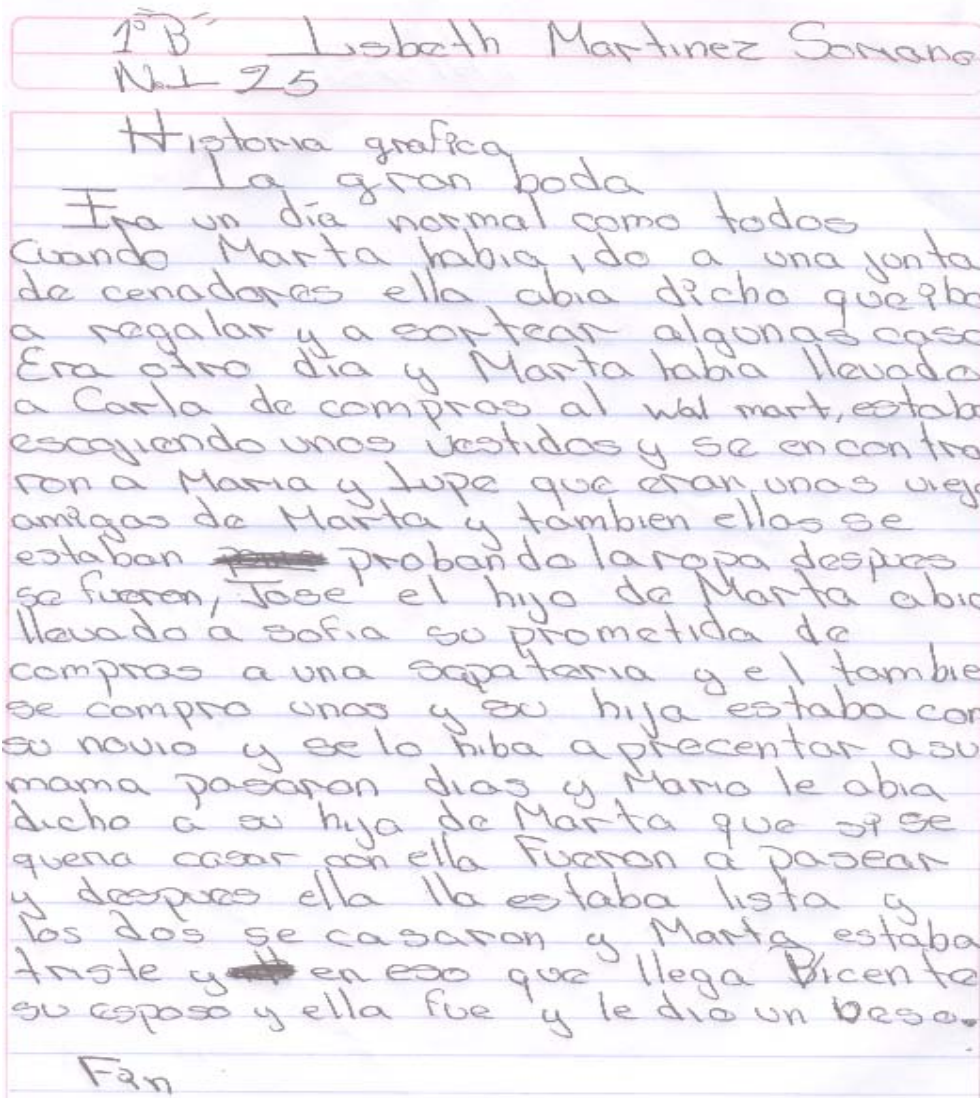 1° B Lisbeth Martinez Soriano
N.L 25
Historia grafica
La gran boda
Era un día normal como todos
Cuando Marta habia ido a una junta
de cenadores ella abia dicho que iba
a regalar y a sortear algunas casa
Era otro día y Marta habia llevado
a Carla de compras al wal mart, estab
escogiendo unos vestidos y se encontra
ron a Maria y Lupe que eran unas vieja
amigas de Marta y tambien ellas se
estaban probando la ropa despues
se fueron, Jose el hijo de Marta abia
llevado a sofia su prometida de
compras a una sapateria y el tambie
se compro unos y su hija estaba con
su novio y se lo hiba a precentar a su
mama pasaron dias y Mario le abia
dicho a su hija de Marta que si se
queria casar con ella Fueron a pasear
y despues ella lla estaba lista y
los dos se casaron y Marta estaba
triste y en eso que llega Bicente
su esposo y ella fue y le dio un beso.
Fin